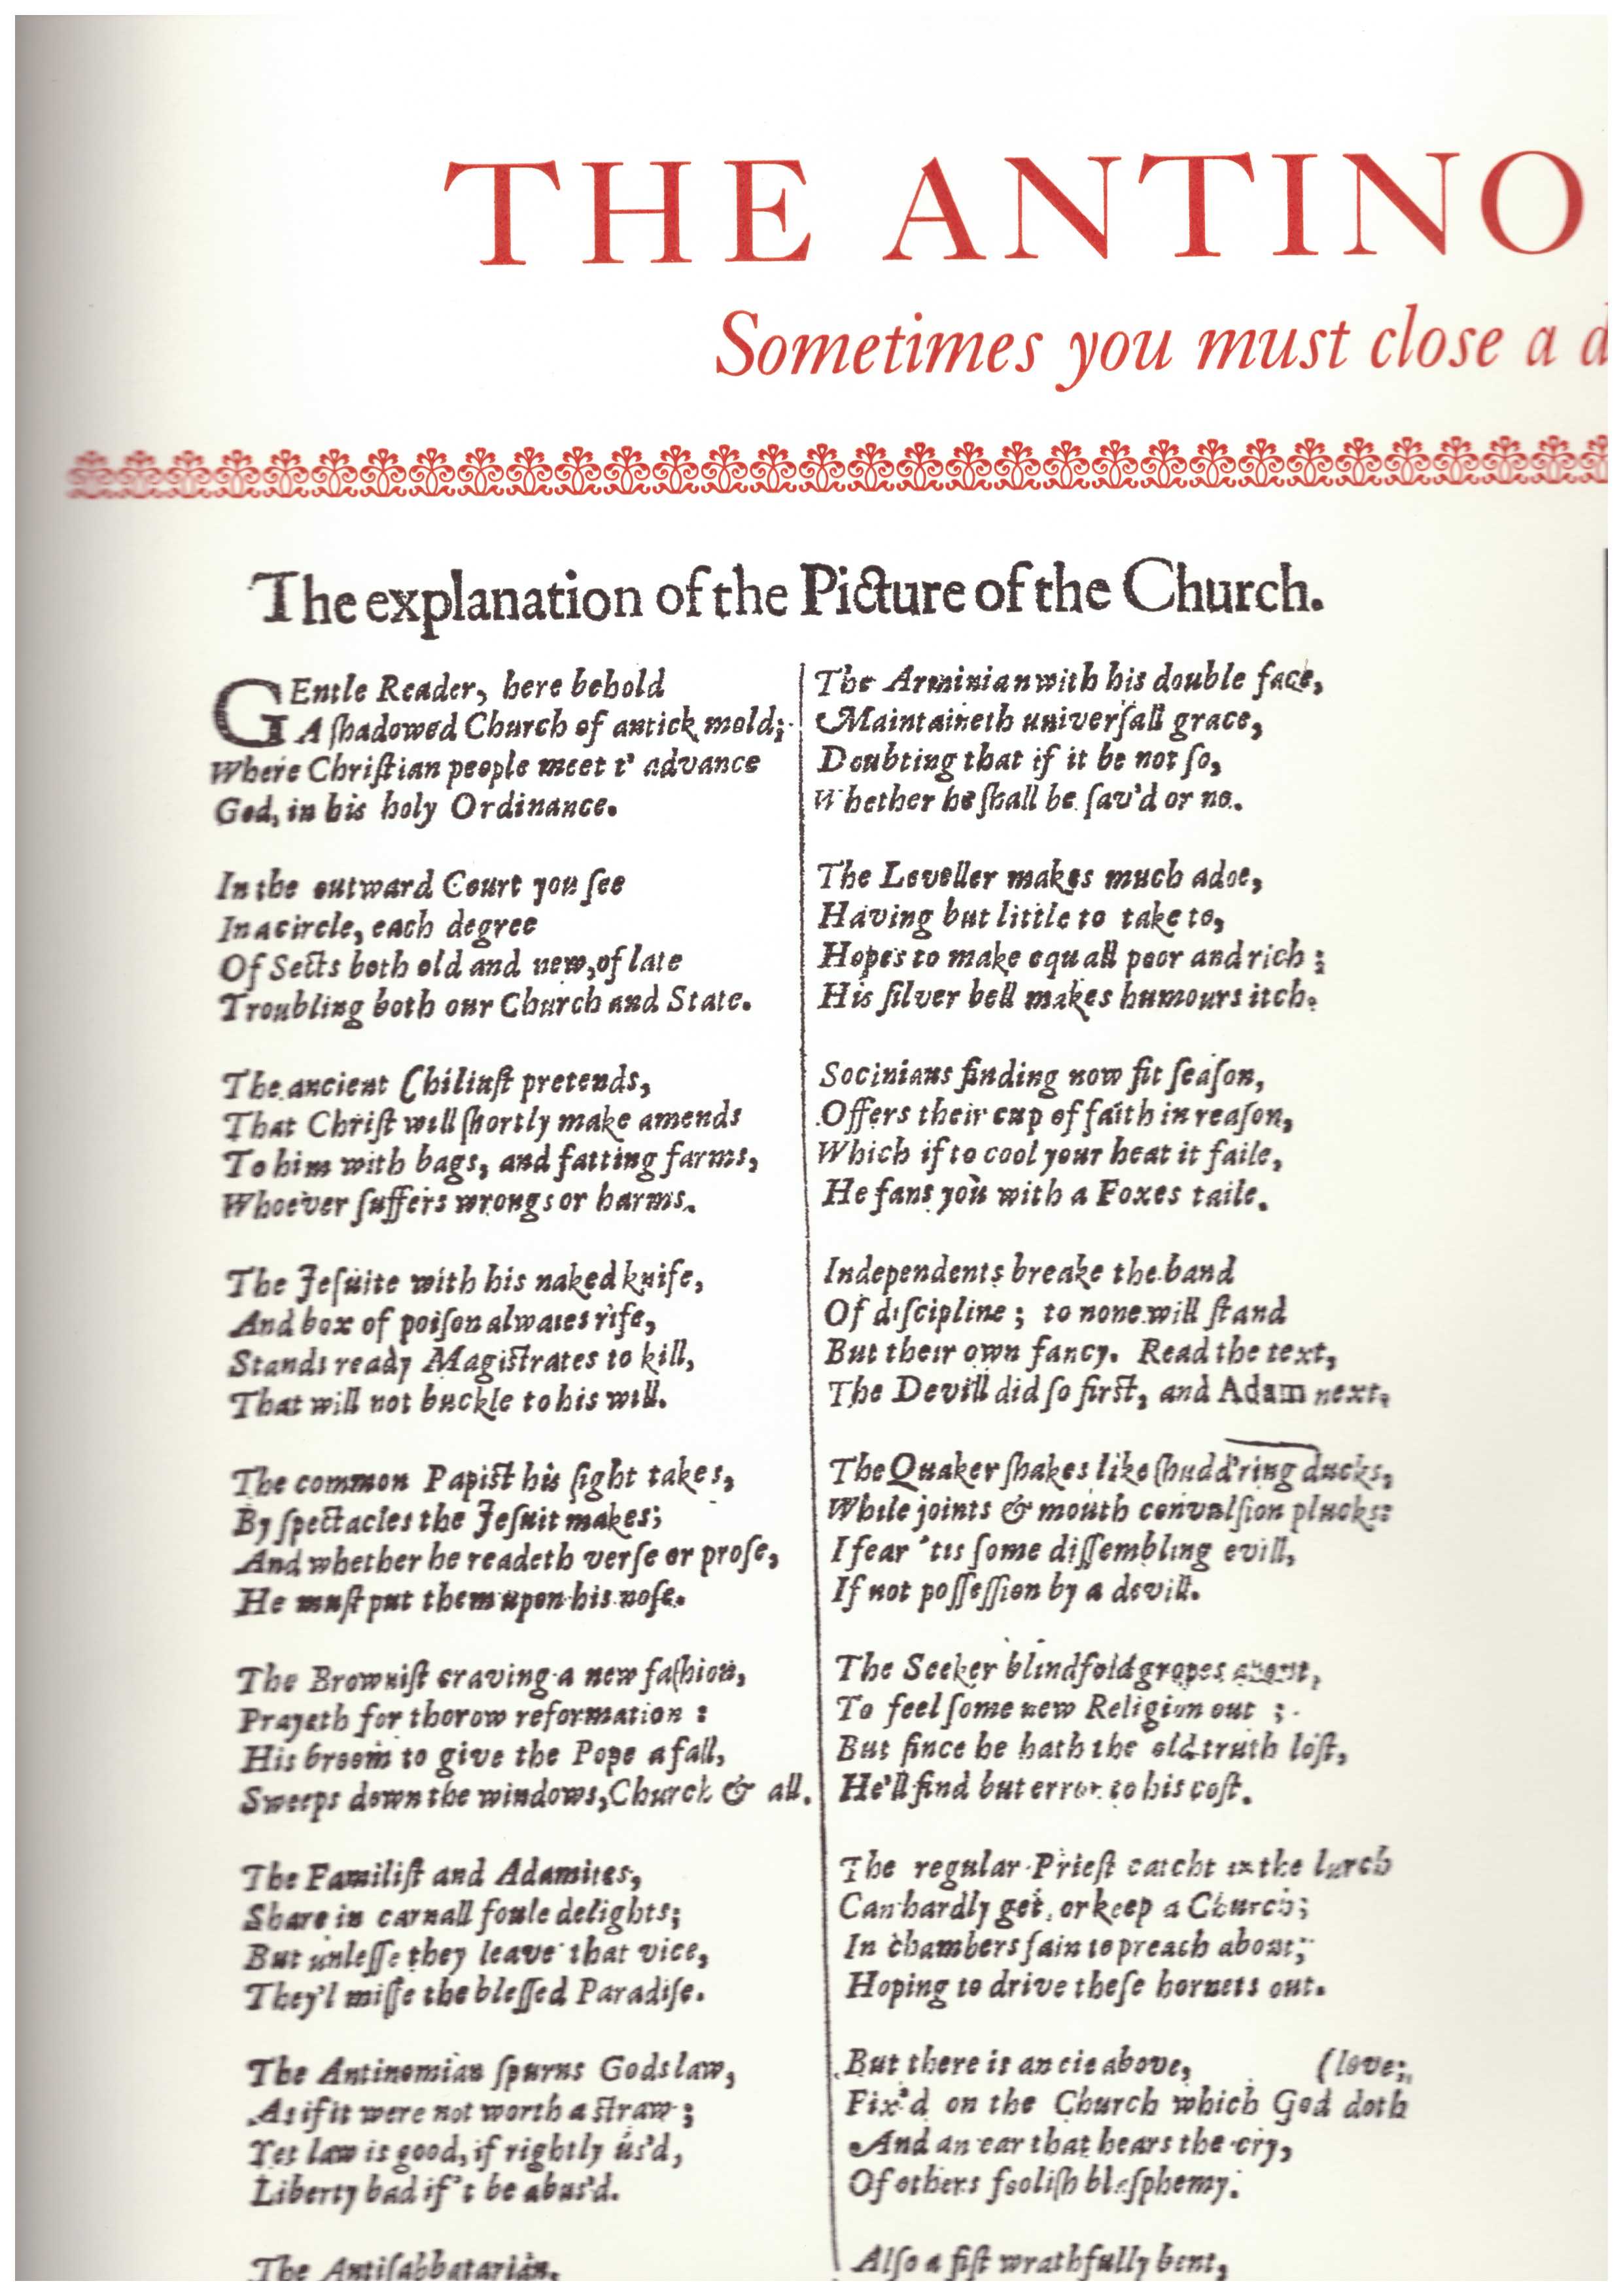 THE ANTINO
Sometimes you must close a d
The explanation of the Picture of the Church.
GEntle Reader, here behold
A ſhadowed Church of antick mold;
Where Chriſtian people meet t' advance
God, in his holy Ordinance.
In the outward Court you ſee
In a circle, each degree
Of Sects both old and new, of late
Troubling both our Church and State.
The ancient Chiliaſt pretends,
That Chriſt will ſhortly make amends
To him with bags, and fatting farms,
Whoever ſuffers wrongs or harms.
The Jeſuite with his naked knife,
And box of poiſon alwaies rife,
Stands ready Magiſtrates to kill,
That will not buckle to his will.
The common Papiſt his ſight takes,
By ſpectacles the Jeſuit makes;
And whether he readeth verſe or proſe,
He muſt put them upon his noſe.
The Browniſt craving a new faſhion,
Prayeth for thorow reformation :
His broom to give the Pope a fall,
Sweeps down the windows, Church & all.
The Familiſt and Adamites,
Share in carnall foule delights;
But unleſſe they leave that vice,
They'l miſſe the bleſſed Paradiſe.
The Antinomian ſpurns Gods law,
As if it were not worth a ſtraw ;
Yet law is good, if rightly us'd,
Liberty bad if't be abus'd.
The Antiſabbatarian,
The Arminian with his double face,
Maintaineth univerſall grace,
Doubting that if it be not ſo,
Whether he ſhall be ſav'd or no.
The Leveller makes much adoe,
Having but little to take to,
Hopes to make equall poor and rich ;
His ſilver bell makes humours itch.
Socinians finding now fit ſeaſon,
Offers their cup of faith in reaſon,
Which if to cool your heat it faile,
He fans you with a Foxes taile.
Independents breake the band
Of diſcipline ; to none will ſtand
But their own fancy. Read the text,
The Devill did ſo firſt, and Adam next.
The Quaker ſhakes like ſhudd'ring ducks,
While joints & mouth convulſion plucks:
I fear 'tis ſome diſſembling evill,
If not poſſeſſion by a devill.
The Seeker blindfold gropes about,
To feel ſome new Religion out ;
But ſince he hath the old truth loſt,
He'll find but error to his coſt.
The regular Prieſt catcht in the lurch
Can hardly get, or keep a Church;
In chambers fain to preach about;
Hoping to drive theſe hornets out.
But there is an eie above, (love;
Fix'd on the Church which God doth
And an ear that hears the cry,
Of others fooliſh blaſphemy.
Alſo a fiſt wrathfully bent,